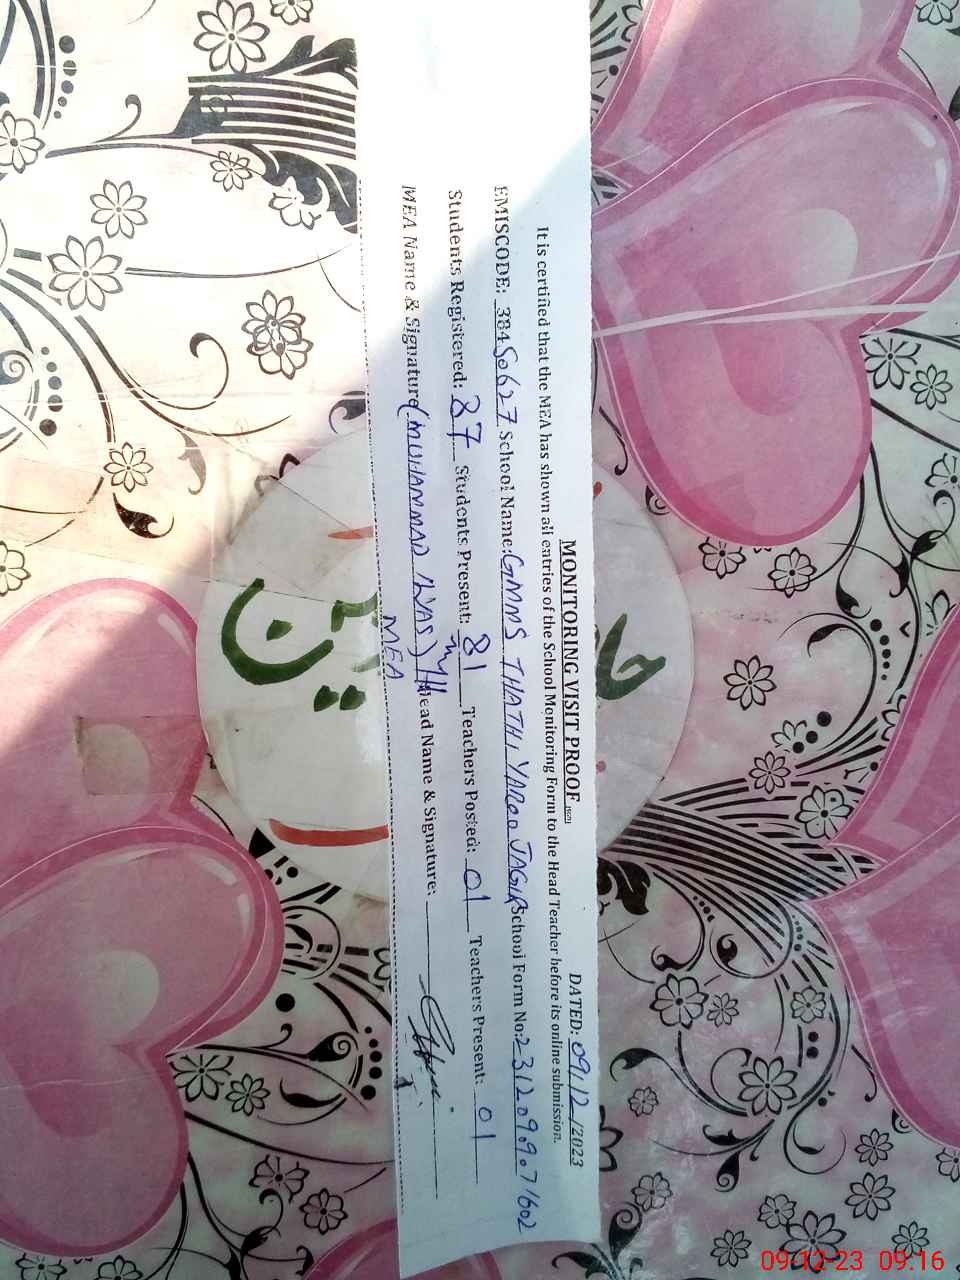 MONITORING VISIT PROOF DATED: 09/12/2023
It is certified that the MEA has shown all entries of the School Monitoring Form to the Head Teacher before its online submission.
EMISCODE: 38450627 School Name: GMMS THATHI YAROO JAGIR School Form No: 23120909071602
Students Registered: 87 Students Present: 81 Teachers Posted: 01 Teachers Present: 01
MEA Name & Signature (MUHAMMAD ILYAS) Head Name & Signature:
MEA
09-12-23 09:16